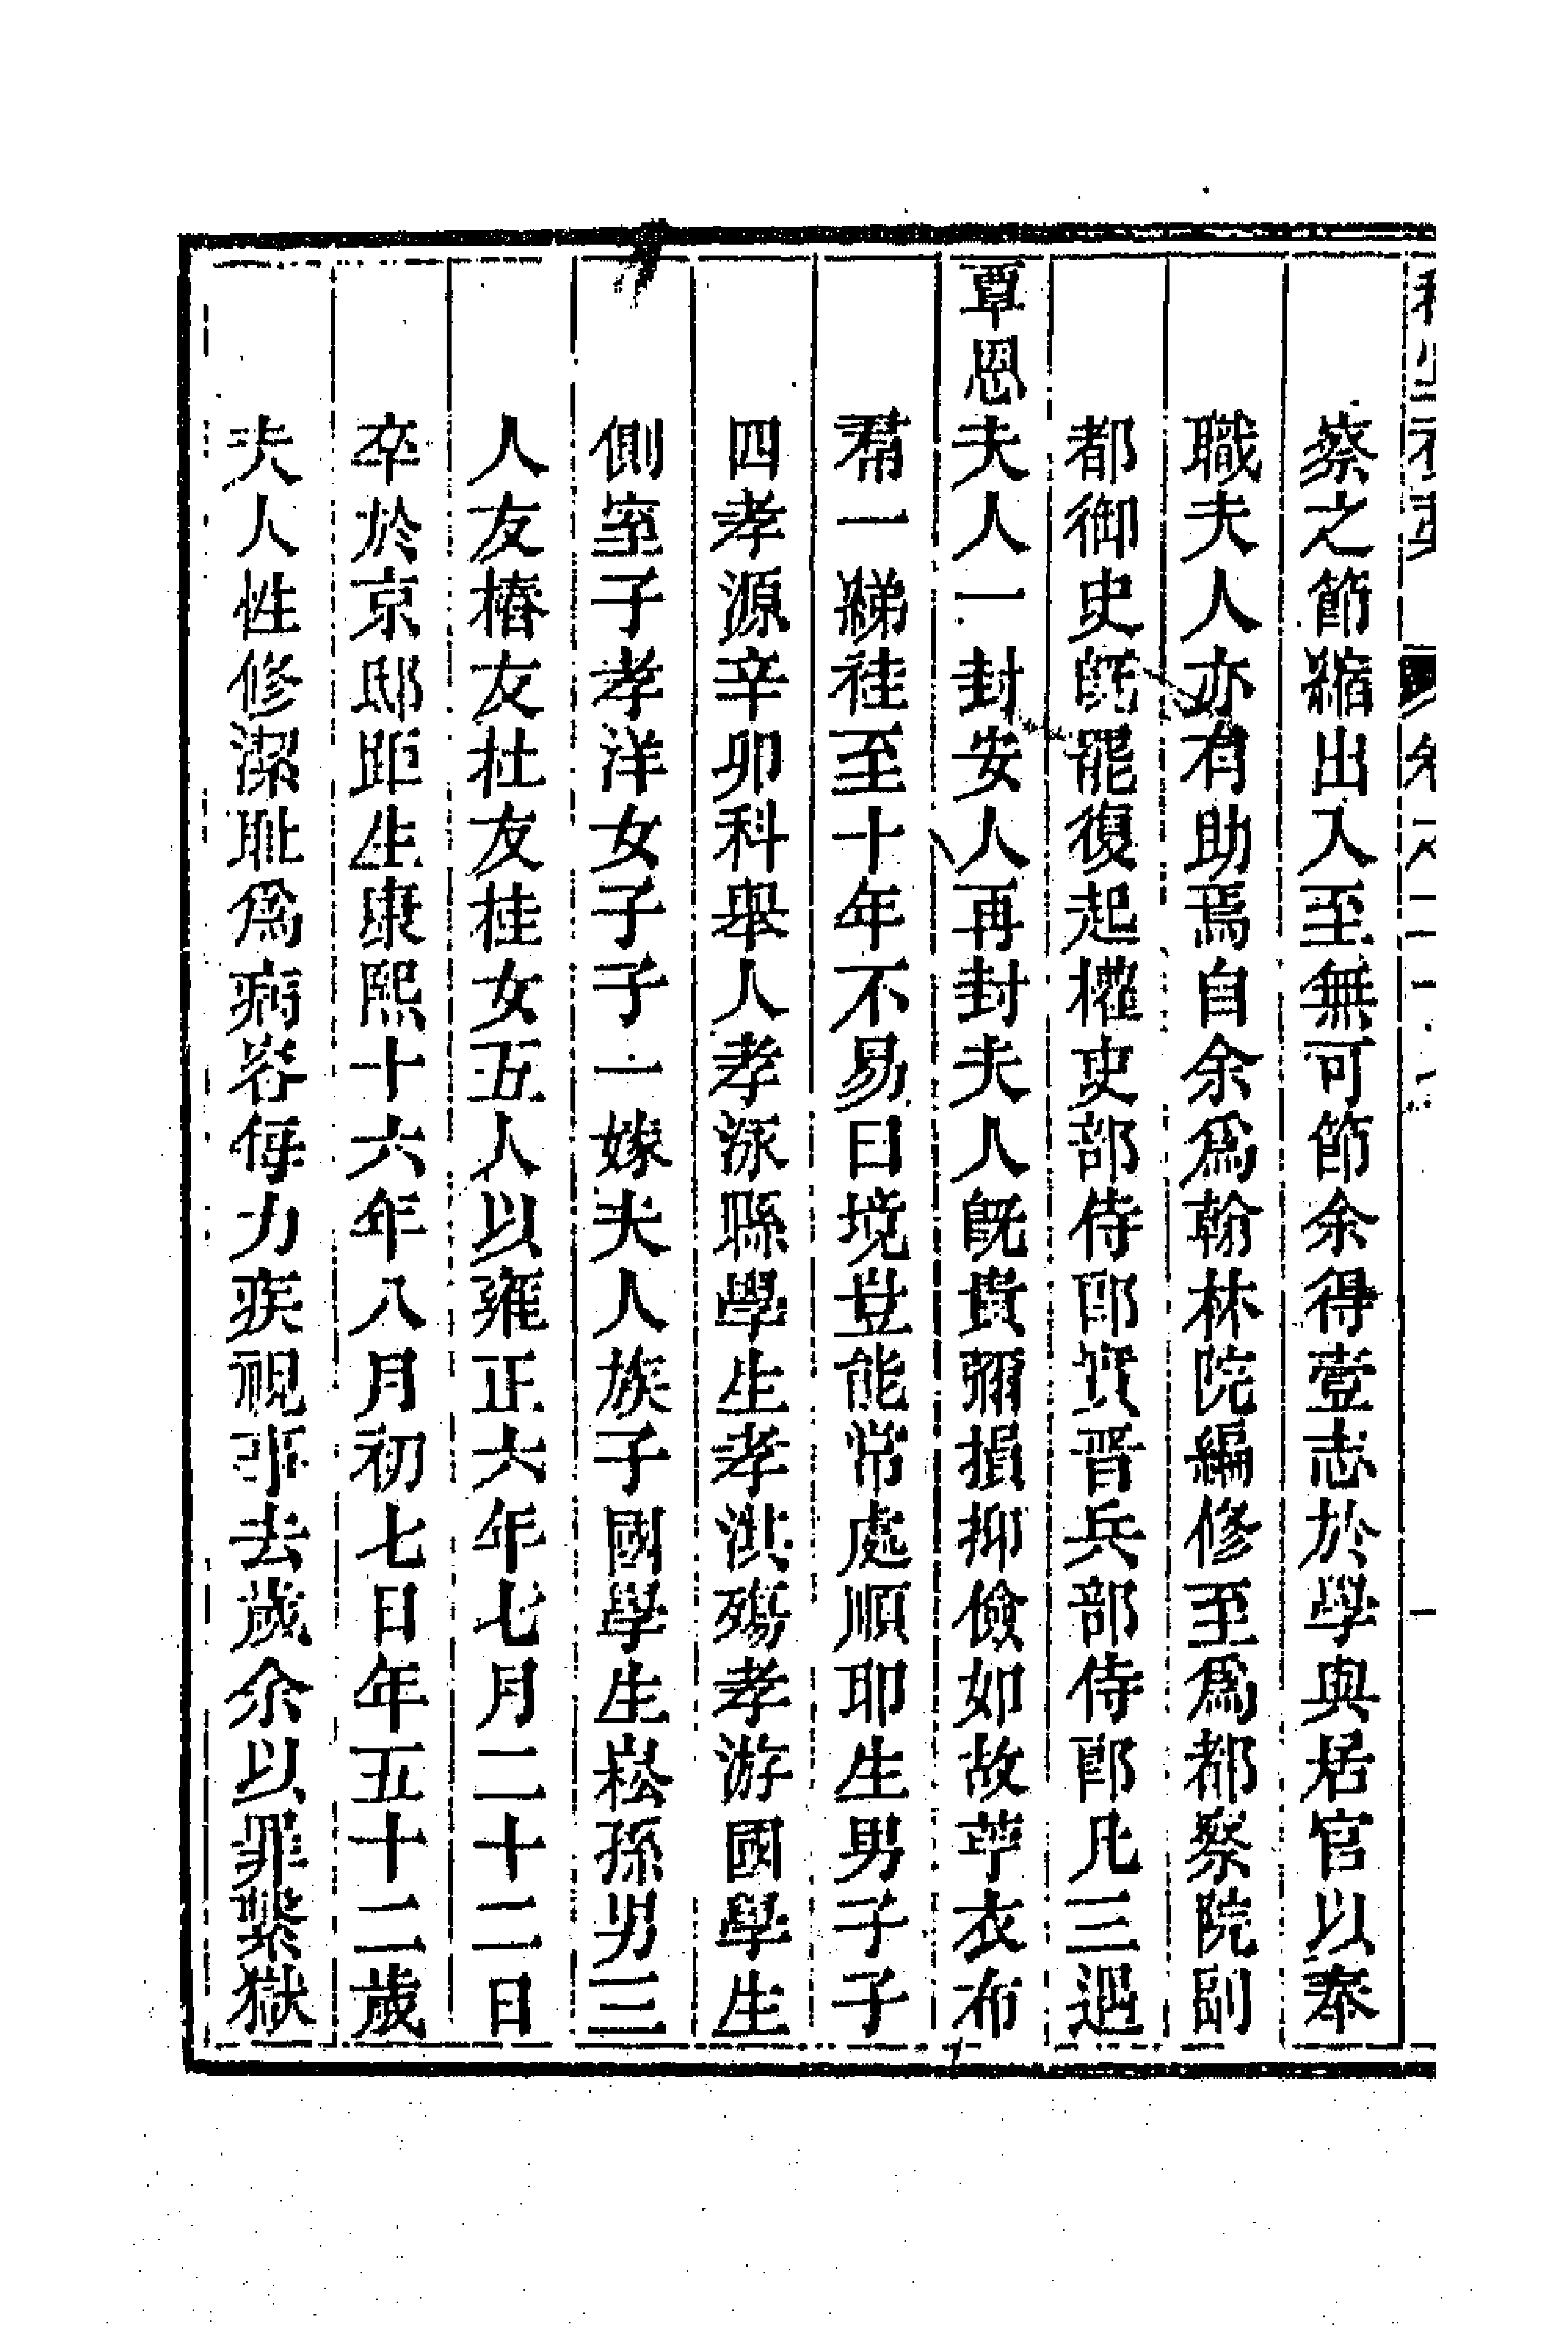 察之節縮出入至無可節余得壹志於學與居官以奉
職夫人亦有助焉自余爲翰林院編修至爲都察院副
都御史旣罷復起擢吏部侍郎晋兵部侍郎凡三遇
覃恩夫人一封安人再封夫人旣貴彌損抑儉如故苧衣布
帬一綈袿至十年不易曰境豈能常處順耶生男子子
四孝源辛卯科舉人孝泳縣學生孝洪殤孝游國學生
側室子孝洋女子子一嫁夫人族子國學生崧孫男三
人友椿友杜友桂女五人以雍正六年七月二十二日
卒於京邸距生康熙十六年八月初七日年五十二歲
夫人性修潔耻爲病容每力疾視事去歲余以罪繫獄